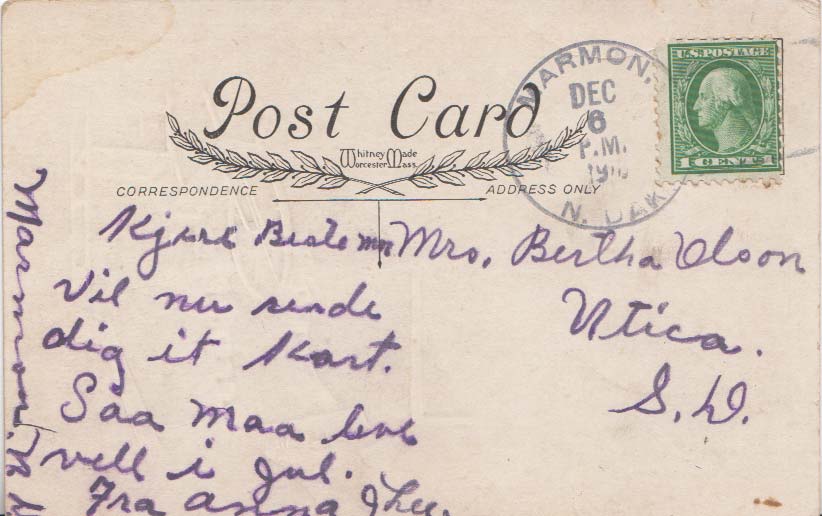 Post Card
Whitney Made
Worcester Mass.
CORRESPONDENCE
ADDRESS ONLY
MARMON,
DEC
6
P.M.
N. DAK
U.S. POSTAGE
1 CENTS 1
Kjere Beste mor
Vil nu sende
dig it Kart.
Saa maa leve
vell i Jul.
Fra Anna
Marmon, N.D.
Mrs. Bertha Olson
Utica.
S.D.